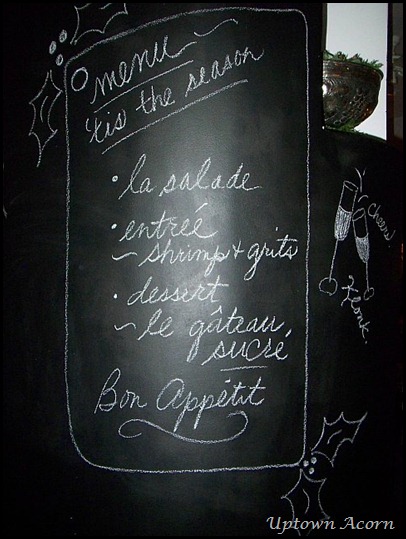 menu
'tis the season
• la salade
• entrée
~ shrimp + grits
• dessert
~ le gâteau,
sucré
Bon Appétit
Cheers
Klonk.
Uptown Acorn